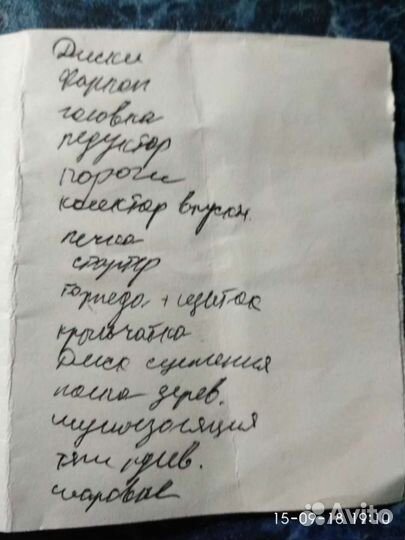 Диски
Фаркоп
головка
редуктор
пороги
колектор впускн.
печка
стартер
Торпедо + щиток
крыльчатка
Диск сцепления
полка дерев.
шумоизоляция
тяги рулев.
шаровые
15-09-18 19:10
Avito